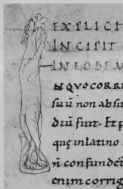 EXPLICIT
INCIPIT
IN EODEM
IN QVO CORRI
suū non absu
diū fiunt. Et p
quę in latino
n̄ confunder
enim corrig